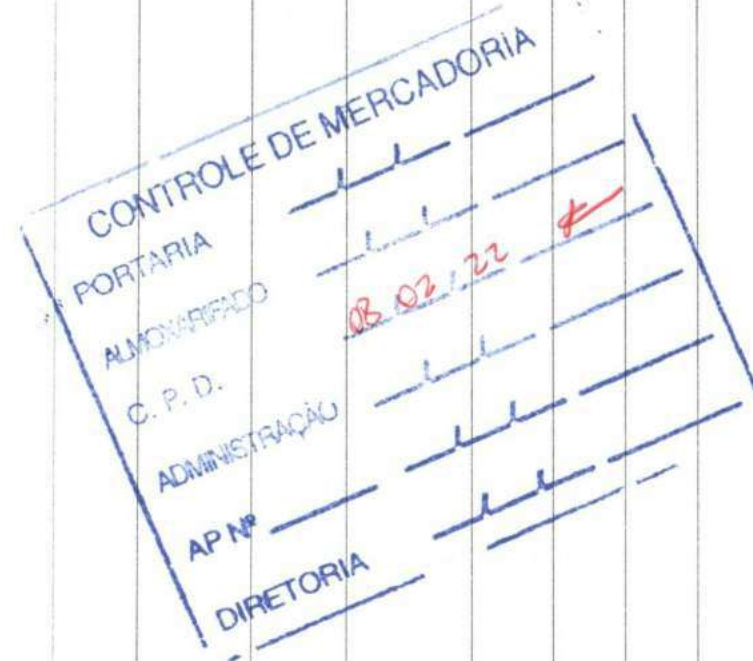 CONTROLE DE MERCADORIA
PORTARIA
ALMOXARIFADO
C. P. D. 08/02/22
ADMINISTRAÇÃO
AP Nº
DIRETORIA